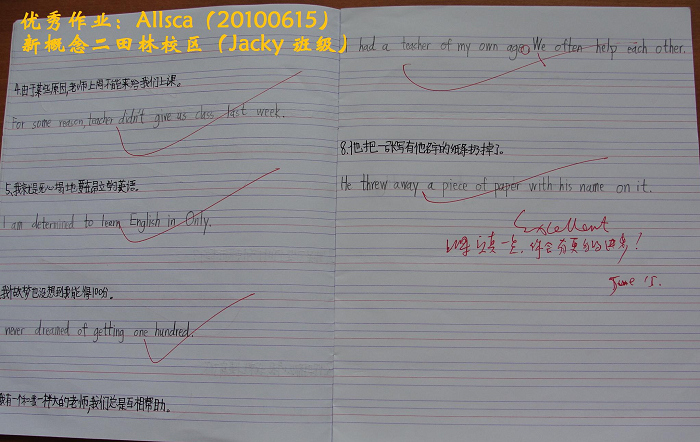 优秀作业：Allsca（20100615）
新概念二田林校区（Jacky 班级）
4.由于某些原因,老师上周不能来给我们上课。
For some reason, teacher didn't give us class last week.
5.我就是死心塌地要在昂立的英语。
I am determined to learn English in Only.
我做梦也没想到我能得100分。
never dreamed of getting one hundred.
有一个和我一样大的老师,我们总是互相帮助。
had a teacher of my own age. We often help each other.
8.他把一张写有他名字的纸条扔掉了。
He threw away a piece of paper with his name on it.
Excellent
认真一点,你会有更多的进步!
June 15.